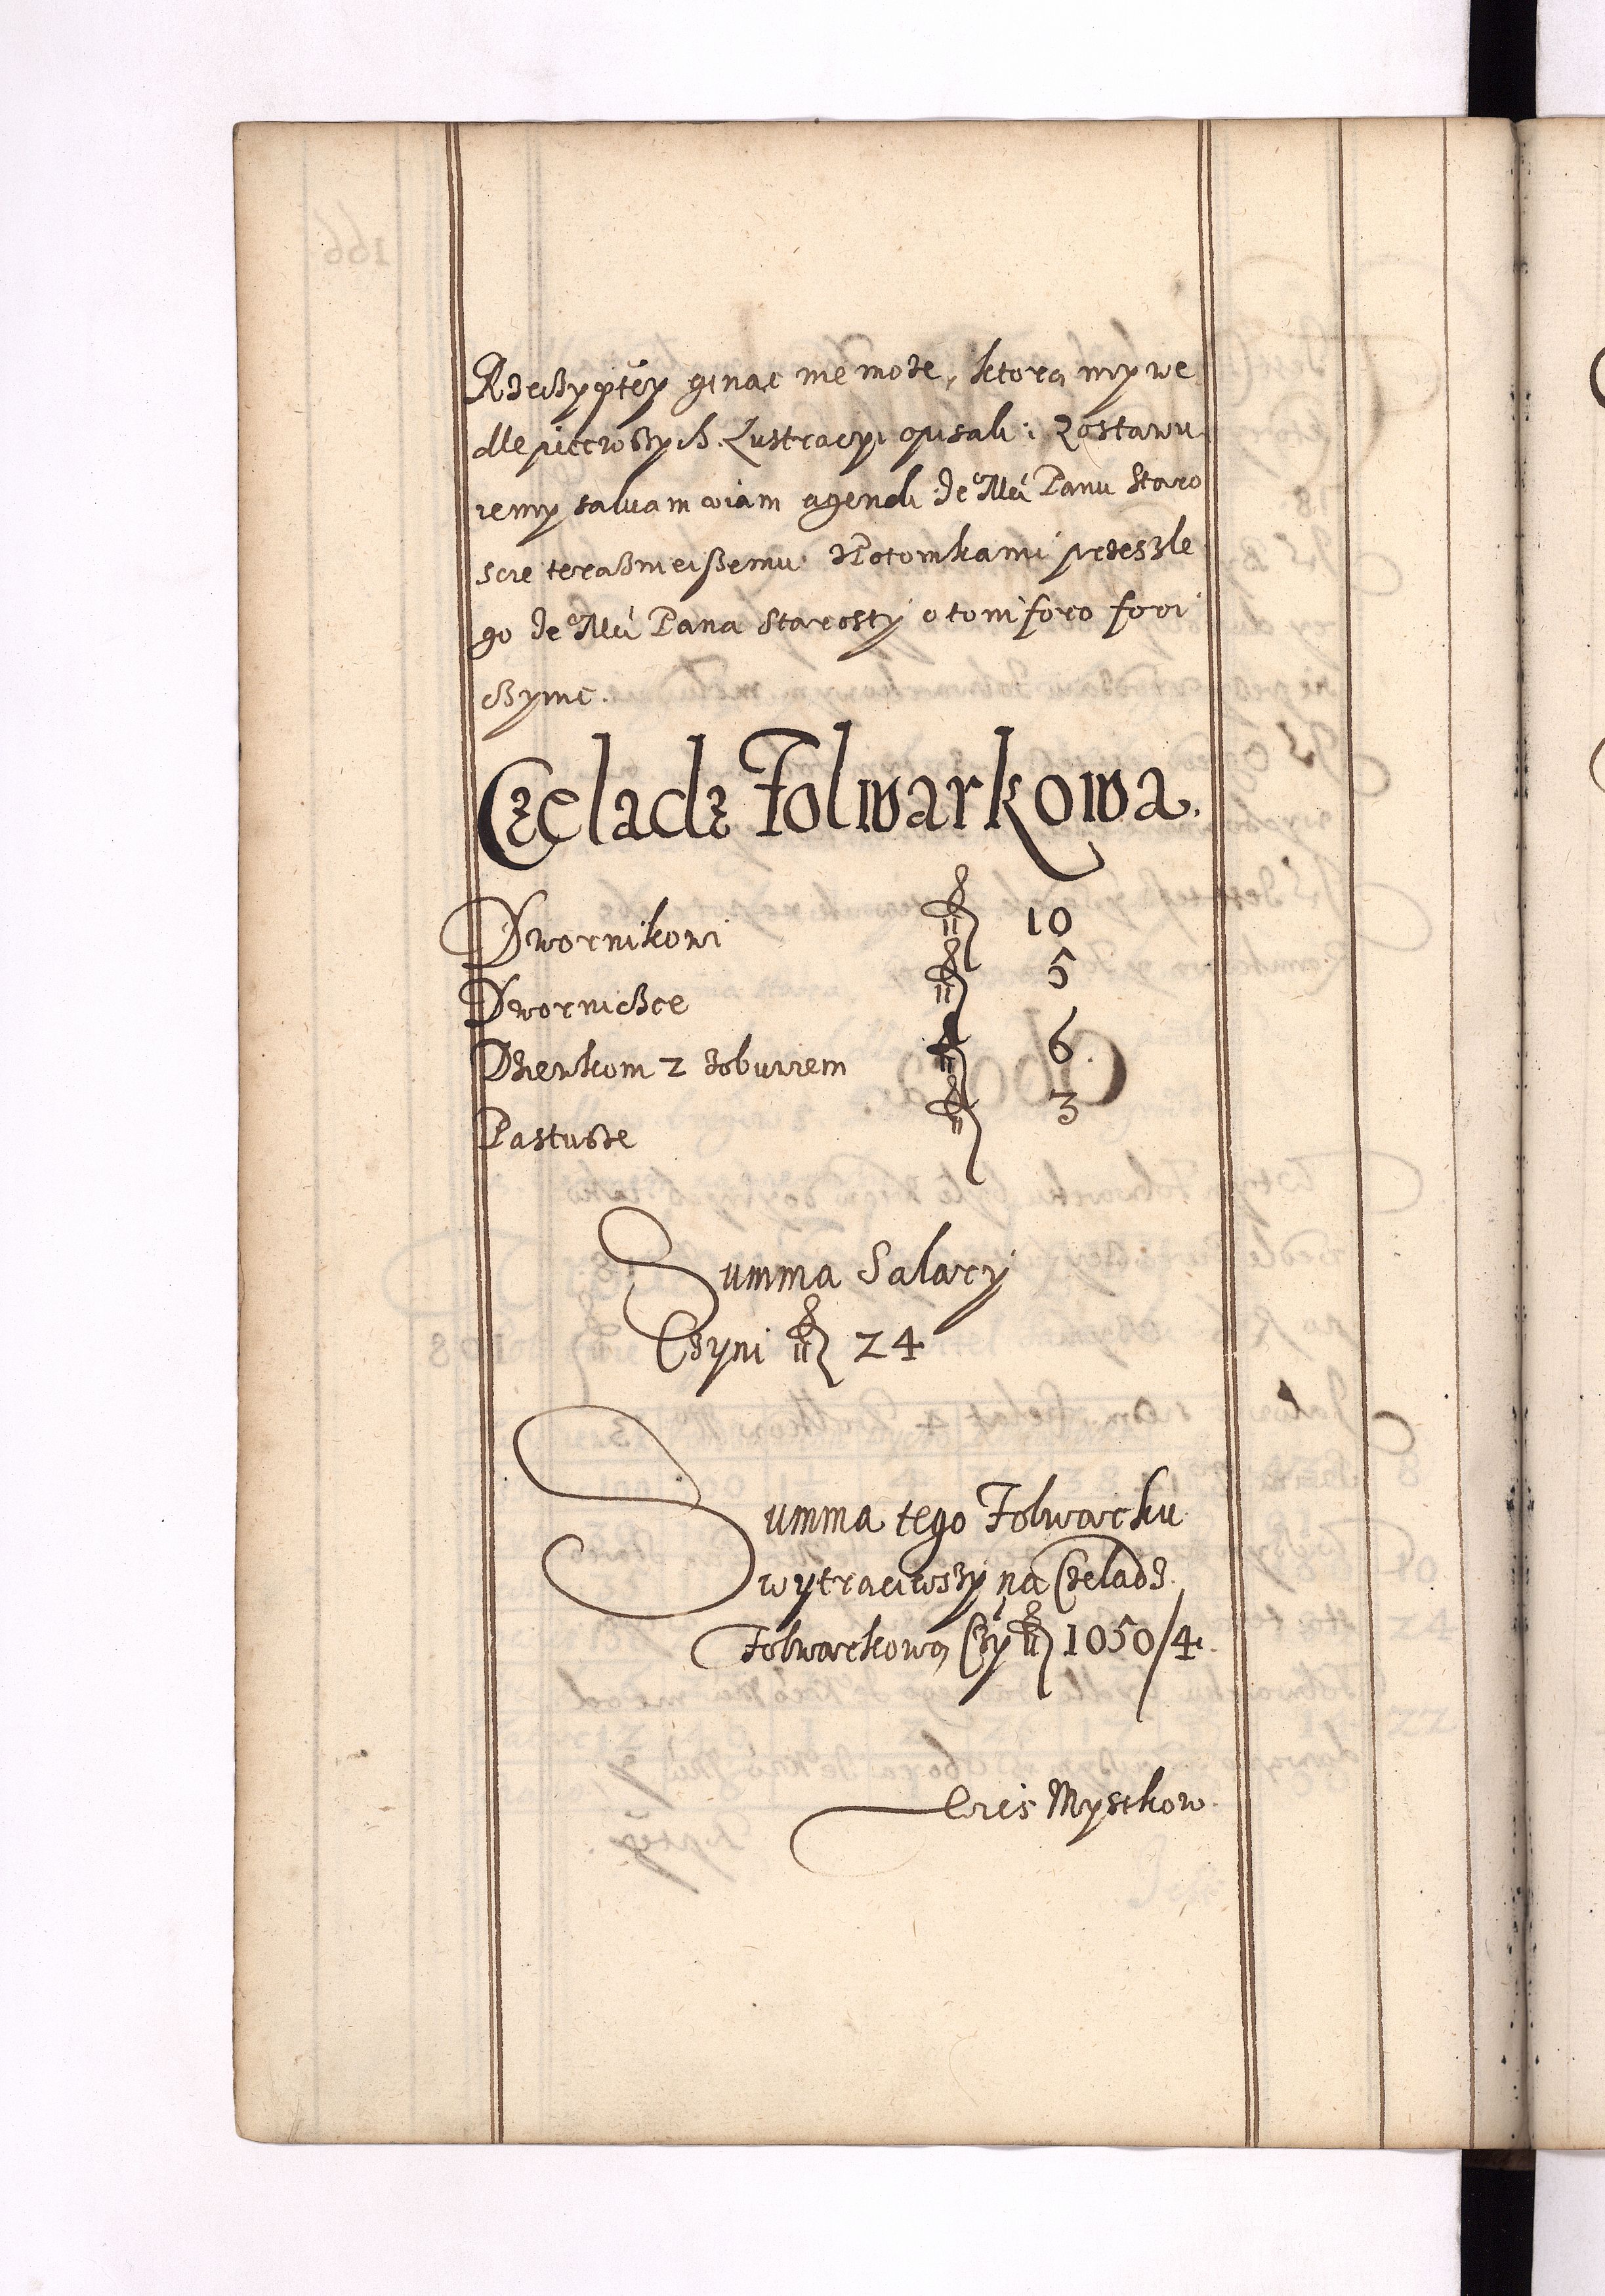 Rzeczyptey ginąc nie może, ktorą my we
dle pierwszych Lustracyi opisali: Zostawu
iemy salvam viam agendi Je Mći Panu Staro
scie terasznieiszemu z Potomkami przeszle
go Je Mći Pana Starosty o to in foro fori
czyme.
Czeladz Folwarkowa.
Dwornikowi fl 10
Dworniczce fl 5
Dzienkom z zobuwiem fl 6
Pastusze fl 3
Summa Salary
Czyni fl 24
Summa tego Folwarku
wytraciwszy na Czeladz
Folwarkową Czy fl 1050/4.
Wies Myszkow